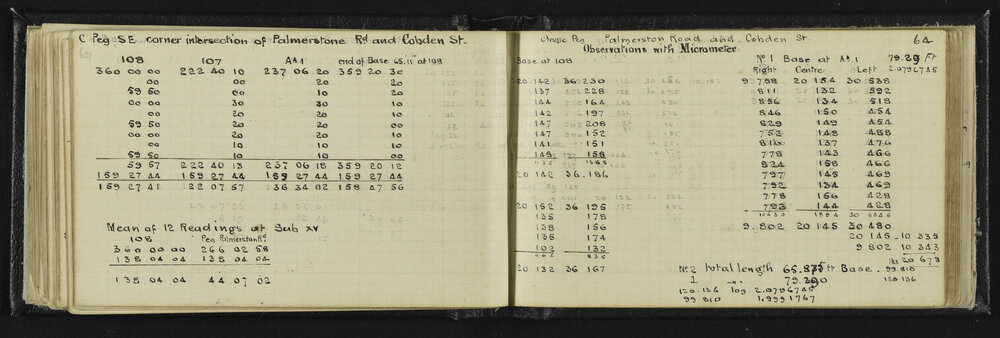 C Peg S.E. corner intersection of Palmerstone Rd and Cobden St.
108 107 AA1 end of Base 65.11 at 108
360 00 00 222 40 10 237 06 20 359 20 30
00 00 20 20
59 50 00 10 20
00 00 30 30 10
00 00 20 20 00
59 50 20 20 00
00 00 20 20 10
00 00 10 10 10
59 50 10 00 00
59 57 222 40 13 237 06 18 359 20 12
159 27 44 159 27 44 159 27 44 159 27 44
159 27 41 22 07 57 236 34 02 158 47 56
Mean of 12 Readings at Sub XV
108 Peg Palmerston Rd
360 00 00 266 02 58
138 04 04 138 04 04
138 04 04 44 07 02
Single Peg Palmerston Road and Cobden St. 64
Observations with Micrometer
Base at 108
20 142 36 230
137 228
144 164
142 197
147 208
147 152
141 151
149 158
20 142 36.186
20 152 36 195
135 178
135 156
135 174
102 132
20 132 36 167
No 1 Base at AA1 79.29 Ft
Right Centre Left 2.0796735
9 798 20 154 30 538
811 132 592
856 134 518
846 150 454
829 149 454
752 148 488
816 137 476
778 143 466
824 158 466
797 145 469
792 134 469
778 156 428
793 144 428
10430 1884 30 6246
9.802 20 145 30 480
20 145 10 335
9 802 10 343
lks 20 678
No 2 total length 65.875 ft Base 99.818
1 " " 79.290 120 136
120.136 log. 2.0796745
99 810 1.9991767